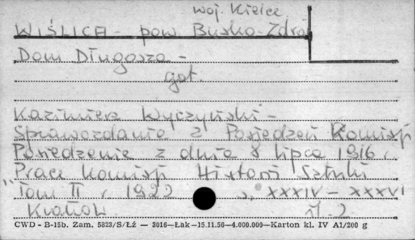 woj. Kielce
WIŚLICA - pow Busko-Zdrój
Dom Długosza -
got.
Kazimierz Wyczyński -
Sprawozdanie z Posiedzeń Komisji
Posiedzenie z dnia 8 lipca 1916.
Prace Komisji Historii Sztuki
Tom II, 1922 s. XXXIV - XXXVI
Kraków il. 2
CWD - B-15b. Zam. 5823/S/Łź — 3016—Łak—15.11.56—4.000.000—Karton kl. IV A1/200 g